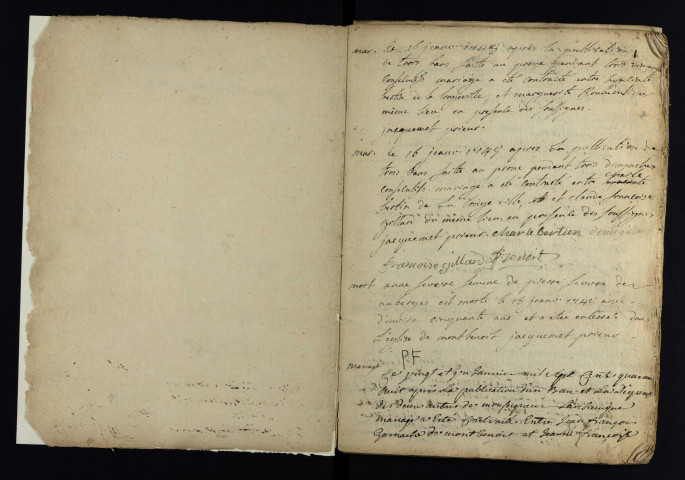 mar. le 16 jeanvi 1748 apres la publication
de trois bans faite au prone pendant trois
consecutifs mariage a été contracté entre
bertin de la longeville et marguerite
même lieu en presence des soussignes
jacquemet prieur.
mar. le 16 jeanvi 1748 apres la publication de
trois bans faite au prone pendant trois dimanches
charle
consecutifs mariage a été contracté entre
bertin de la longeville et claude francoise
gillard du même lieu en presence des soussignes
jacquemet prieur charle bertien
francoise gillard
mort anne semme de pierre des
auberges est morte le 15 jeanvi 1748 agée
d'environ cinquante ans et a été enterrée dans
l'eglise de montbenoit jacquemet prieur
PF
mariage
Le vingt et un Janvier mil sept Cent quaran
huit après la publication d'un Ban et la dispense
des deux autres de monseigneur L'archeveque
mariage a Eté Contracté Entre jean françois
de montbenoit et jeanne françoise